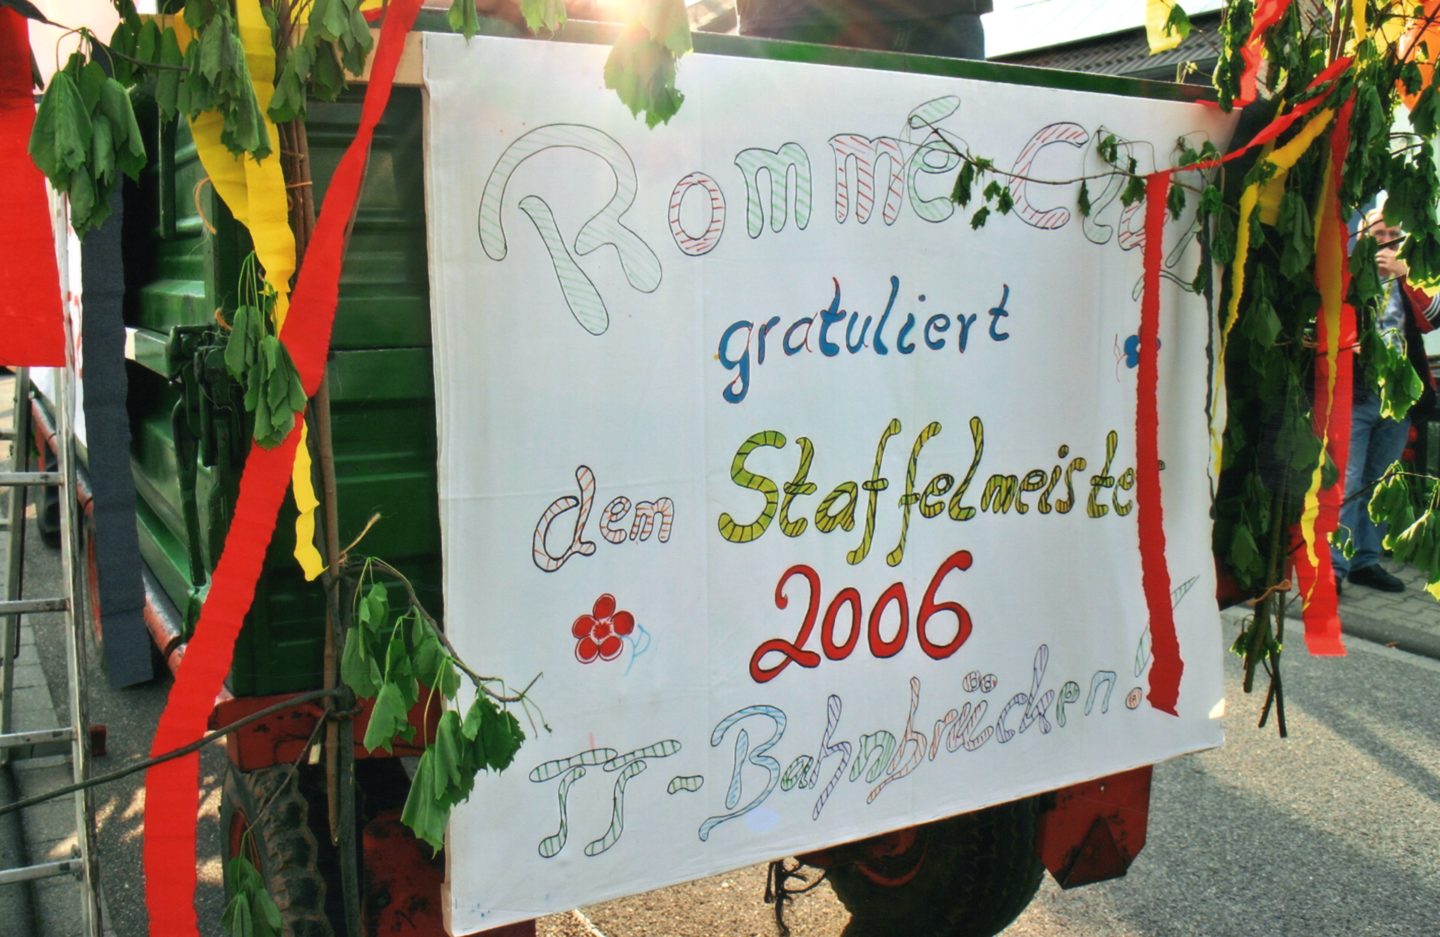 Rommé Club
gratuliert
dem Staffelmeister
2006
TT-Bahnbrücken!